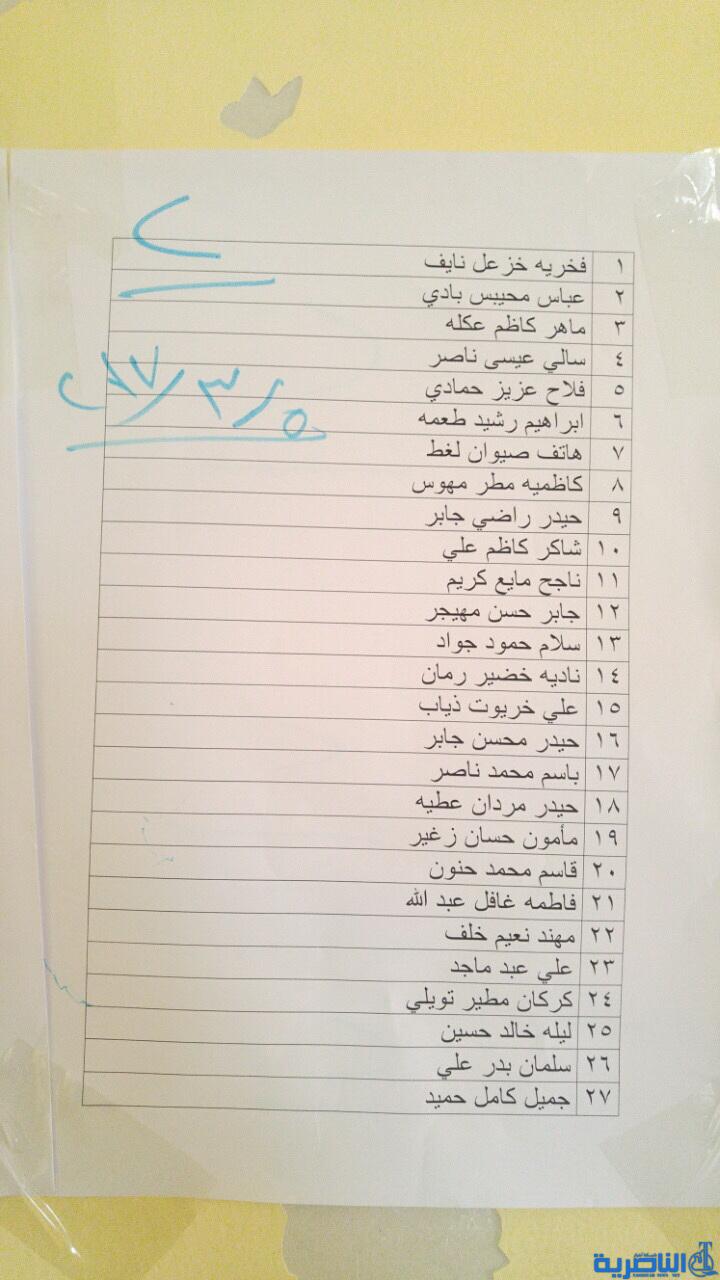 ١ فخريه خزعل نايف
٢ عباس محيبس بادي
٣ ماهر كاظم عكله
٤ سالي عيسى ناصر
٥ فلاح عزيز حمادي
٦ ابراهيم رشيد طعمه
٧ هاتف صيوان لغط
٨ كاظميه مطر مهوس
٩ حيدر راضي جابر
١٠ شاكر كاظم علي
١١ ناجح مايع كريم
١٢ جابر حسن مهيجر
١٣ سلام حمود جواد
١٤ ناديه خضير رمان
١٥ علي خريوت ذياب
١٦ حيدر محسن جابر
١٧ باسم محمد ناصر
١٨ حيدر مردان عطيه
١٩ مأمون حسان زغير
٢٠ قاسم محمد حنون
٢١ فاطمه غافل عبد الله
٢٢ مهند نعيم خلف
٢٣ علي عبد ماجد
٢٤ كركان مطير تويلي
٢٥ ليله خالد حسين
٢٦ سلمان بدر علي
٢٧ جميل كامل حميد
الناصرية